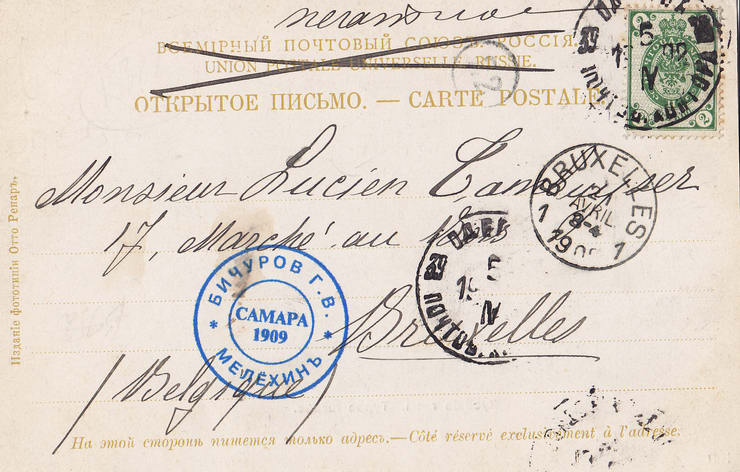 печатное
ВСЕМІРНЫЙ ПОЧТОВЫЙ СОЮЗЪ. РОССІЯ.
UNION POSTALE UNIVERSELLE. RUSSIE.
ОТКРЫТОЕ ПИСЬМО. — CARTE POSTALE
2
Monsieur Lucien
17, Marché au
Bruxelles
(Belgique)
BRUXELLES
1 1
21
AVRIL
8-4
5
IV
5
IV
БИЧУРОВ Г. В.
САМАРА
1909
МЕЛЕХИНЪ
Изданіе фототипіи Отто Ренаръ.
На этой сторонѣ пишется только адресъ.—Côté réservé exclusivement à l'adresse.